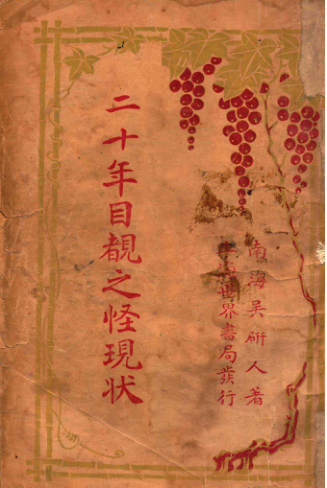 二十年目覩之怪現状
南海吳研人著
世界書局發行